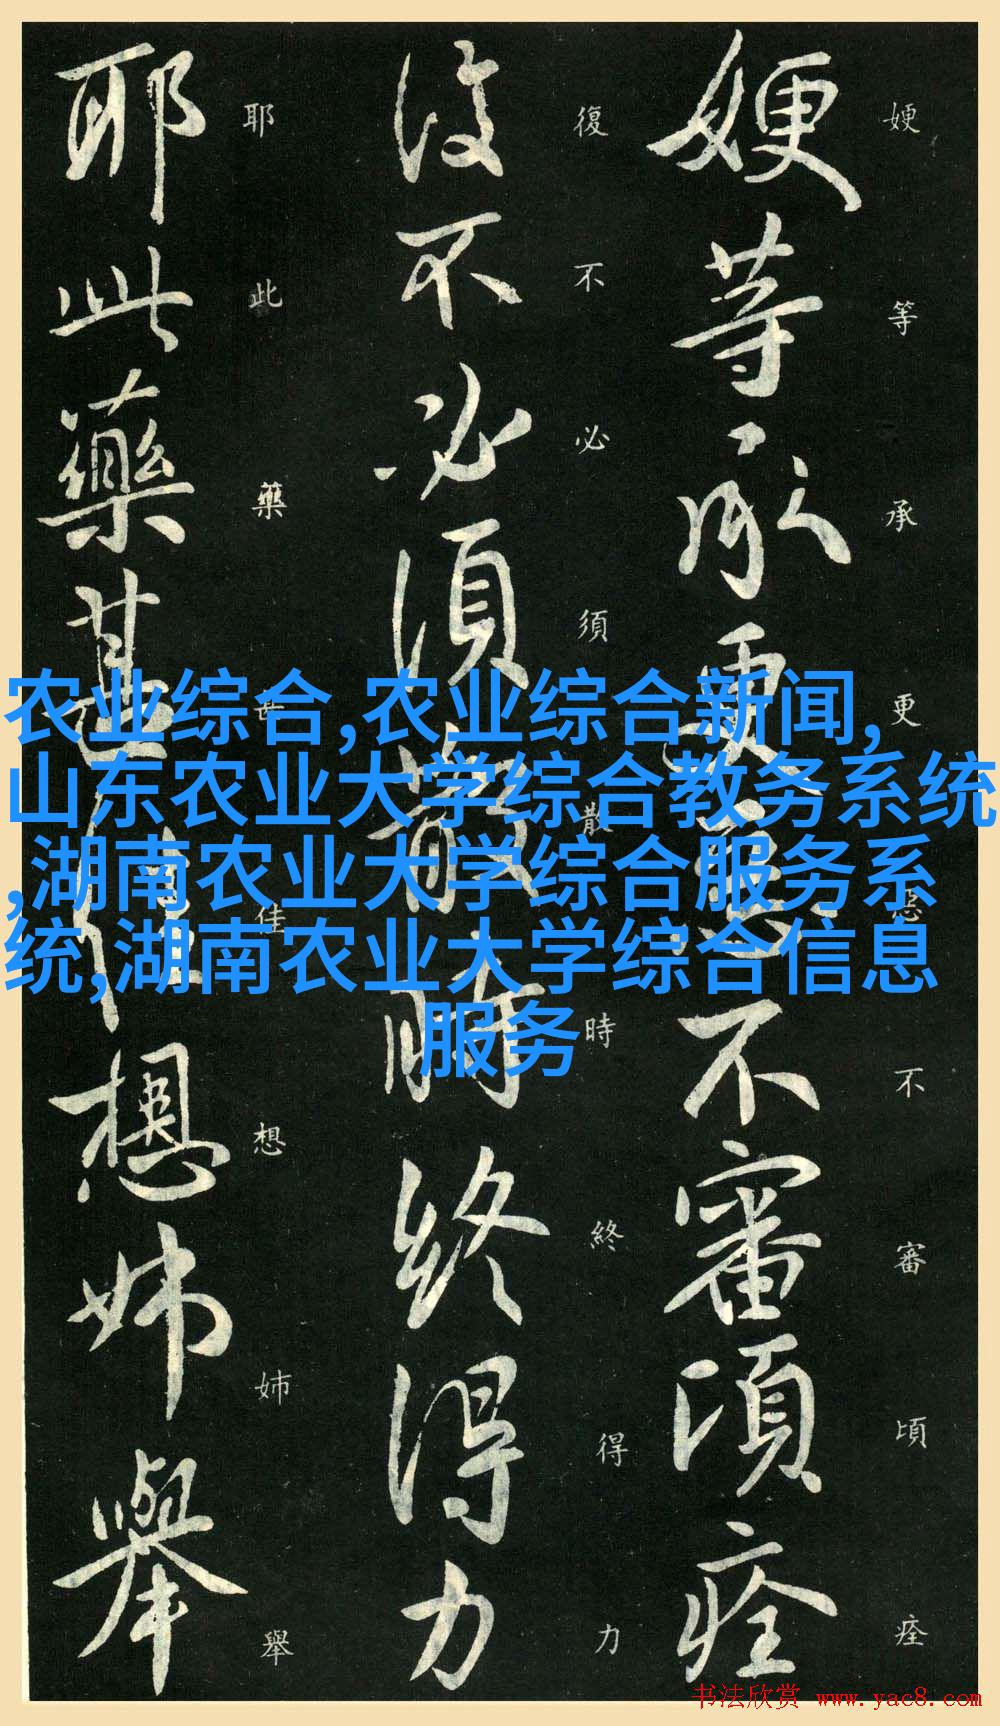 農业综合,农业综合新闻,
山东农业大学综合教务系统
,湖南农业大学综合服务系
统,湖南农业大学综合信息
服务
㛐等承更惡不審頃痊
復不必須散時終得力
耶此藥甚佳想姊舉
㛐等承更惡不審頃痊
復不必須散時終得力
耶此藥甚佳想姊舉
书法欣赏 www.yac8.com